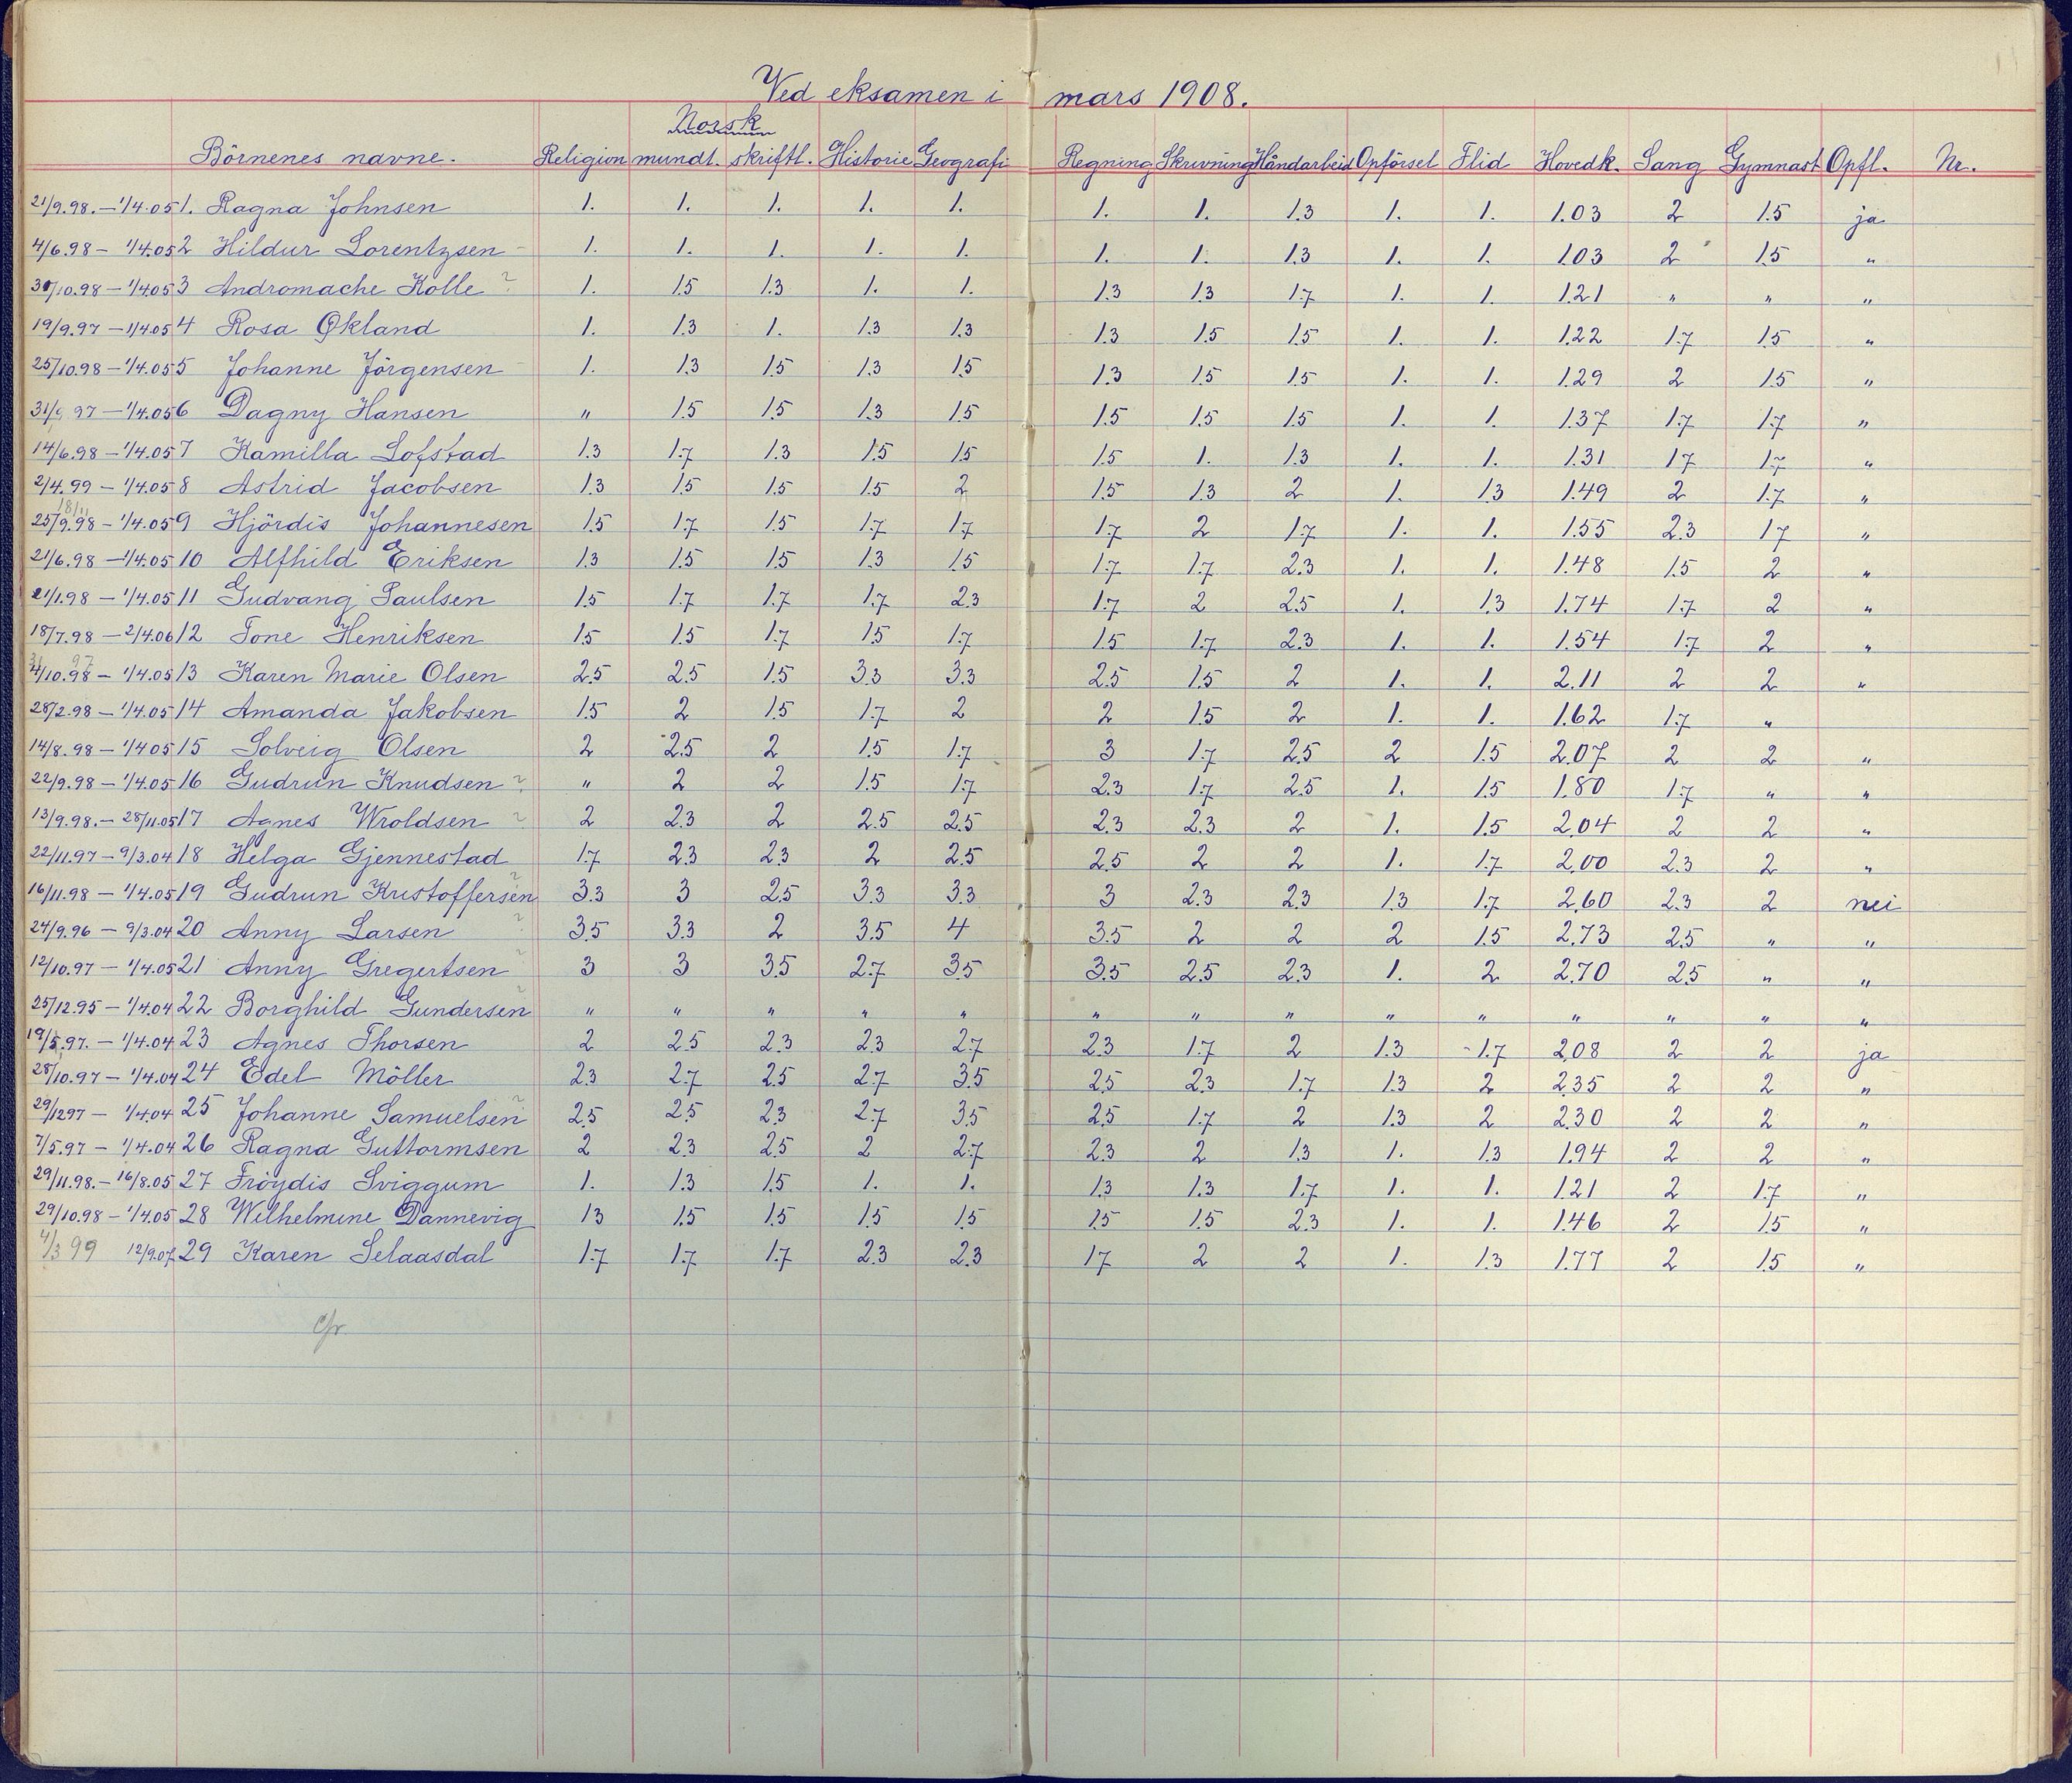 Ved eksamen i mars 1908.
Norsk
Börnenes navne. Religion mundt. skriftl. Historie Geografi Regning Skrivning Håndarbeid Opförsel Flid Hovedk. Sang Gymnast Opfl. Nr.
21/9.98.–1/4.05 1. Ragna Johnsen 1. 1. 1. 1. 1. 1. 1. 1.3 1. 1. 1.03 2 1.5 ja
4/6.98– 1/4.05 2 Hildur Lorentzsen – 1. 1. 1. 1. 1. 1. 1. 1.3 1. 1. 1.03 2 1.5 "
/10.98–1/4.05 3 Andromache Kolle ? 1. 1.5 1.3 1. 1. 1.3 1.3 1.7 1. 1. 1.21 " " "
19/9.97–1/4.05 4 Rosa Økland 1. 1.3 1. 1.3 1.3 1.3 1.5 1.5 1. 1. 1.22 1.7 1.5 "
25/10.98–1/4.05 5 Johanne Jörgensen – 1. 1.3 1.5 1.3 1.5 1.3 1.5 1.5 1. 1. 1.29 2 1.5 "
97–1/4.05 6 Dagny Hansen " 1.5 1.5 1.3 1.5 1.5 1.5 1.5 1. 1. 1.37 1.7 1.7 "
14/6.98–1/4.05 7 Kamilla Lofstad 1.3 1.7 1.3 1.5 1.5 1.5 1. 1.3 1. 1. 1.31 1.7 1.7 "
2/4.99–1/4.05 8 Astrid Jacobsen 1.3 1.5 1.5 1.5 2 1.5 1.3 2 1. 1.3 1.49 2 1.7 "
18/11
25/9.98–1/4.05 9 Hjördis Johannesen 1.5 1.7 1.5 1.7 1.7 1.7 2 1.7 1. 1. 1.55 2.3 1.7 "
21/6.98–1/4.05 10 Alfhild Eriksen 1.3 1.5 1.5 1.3 1.5 1.7 1.7 2.3 1. 1. 1.48 1.5 2 "
21/1.98–1/4.05 11 Gudvang Paulsen 1.5 1.7 1.7 1.7 2.3 1.7 2 2.5 1. 1.3 1.74 1.7 2 "
18/7.98–2/4.06 12 Tone Henriksen 1.5 1.5 1.7 1.5 1.7 1.5 1.7 2.3 1. 1. 1.54 1.7 2 "
97
4/10.98– 1/4.05 13 Karen Marie Olsen 2.5 2.5 1.5 3.3 3.3 2.5 1.5 2 1. 1. 2.11 2 2 "
28/2.98–1/4.05 14 Amanda Jakobsen 1.5 2 1.5 1.7 2 2 1.5 2 1. 1. 1.62 1.7 "
14/8.98–1/4.05 15 Solveig Olsen 2 2.5 2 1.5 1.7 3 1.7 2.5 2 1.5 2.07 2 2 "
22/9.98–1/4.05 16 Gudrun Knudsen ? " 2 2 1.5 1.7 2.3 1.7 2.5 1. 1.5 1.80 1.7 " "
13/9.98.–28/11.05 17 Agnes Wroldsen ? 2 2.3 2 2.5 2.5 2.3 2.3 2 1. 1.5 2.04 2 2 "
22/11.97–9/3.04 18 Helga Gjennestad 1.7 2.3 2.3 2 2.5 2.5 2 2 1. 1.7 2.00 2.3 2 "
16/11.98–1/4.05 19 Gudrun Kristoffersen ? 3.3 3 2.5 3.3 3.3 3 2.3 2.3 1.3 1.7 2.60 2.3 2 nei
24/9.96–9/3.04 20 Anny Larsen ? 3.5 3.3 2 3.5 4 3.5 2 2 2 1.5 2.73 2.5 " "
12/10.97–1/4.05 21 Anny Gregertsen ? 3 3 3.5 2.7 3.5 3.5 2.5 2.3 1. 2 2.70 2.5 " "
25/12.95–1/4.04 22 Borghild Gundersen ? " " " " " " " " " " " " " "
19/5.97.–1/4.04 23 Agnes Thorsen 2 2.5 2.3 2.3 2.7 2.3 1.7 2 1.3 1.7 2.08 2 2 ja
28/10.97–1/4.04 24 Edel Möller 2.3 2.7 2.5 2.7 3.5 2.5 2.3 1.7 1.3 2 2.35 2 2 "
29/12 97– 1/4.04 25 Johanne Samuelsen ? 2.5 2.5 2.3 2.7 3.5 2.5 1.7 2 1.3 2 2.30 2 2 "
7/5.97– 1/4.04 26 Ragna Guttormsen 2 2.3 2.5 2 2.7 2.3 2 1.3 1. 1.3 1.94 2 2 "
29/11.98.–16/8.05 27 Fröydis Sviggum 1. 1.3 1.5 1. 1. 1.3 1.3 1.7 1. 1. 1.21 2 1.7 "
29/10.98–1/4.05 28 Wilhelmine Dannevig 1.3 1.5 1.5 1.5 1.5 1.5 1.5 2.3 1. 1. 1.46 2 1.5 "
4/3 99 12/9.07 29 Karen Selaasdal 1.7 1.7 1.7 2.3 2.3 1.7 2 2 1. 1.3 1.77 2 1.5 "